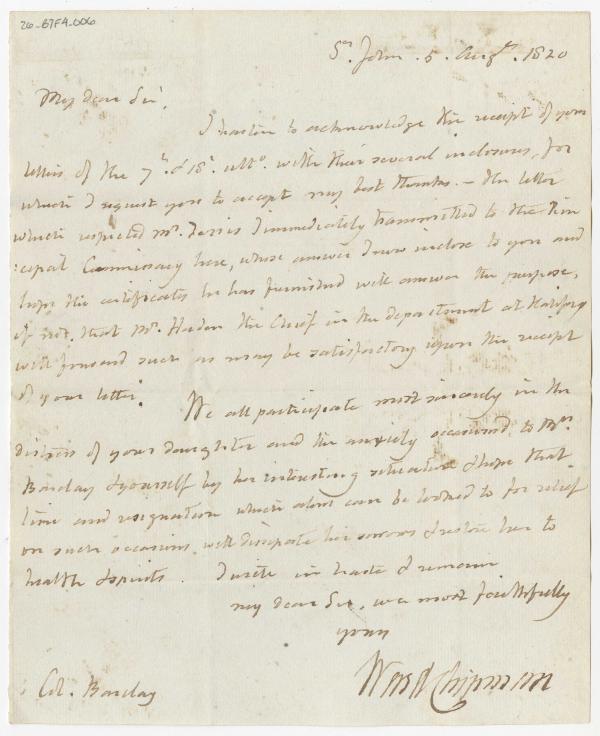 26-B7F4-006
St. John. 5. Augt. 1820
My dear Sir,
I hasten to acknowledge the receipt of your
letters of the 7th. & 18th. ulto. with their several inclosures, for
which I request you to accept my best thanks. — The letter
which respected Mr. I immediately transmitted to the Prin
:cipal Commissary here, whose answer I now inclose to you and
hope the certificates he has furnished will answer the purpose,
if not, that Mr. the Chief in the department at Halifax
will forward such as may be satisfactory upon the receipt
of your letter.
We all participate most sincerely in the
distress of your daughter and the anxiety occasioned to Mrs.
Barclay & yourself by her interesting situation & hope that
time and resignation which alone can be looked to for relief
on such occasions, will dissipate her sorrows & restore her to
health & spirits. I write in haste & remain
my dear Sir, most faithfully
yours
Ward Chipman
Col. Barclay